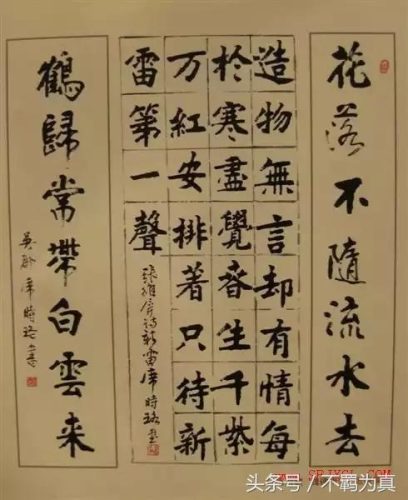 花落不隨流水去
造物無言却有情每
於寒盡覺春生千紫
万紅安排著只待新
雷第一聲
張維屏詩新雷席時珞書
鶴歸常帶白雲来
吳郡席時珞書
头条号 / 不羁为真